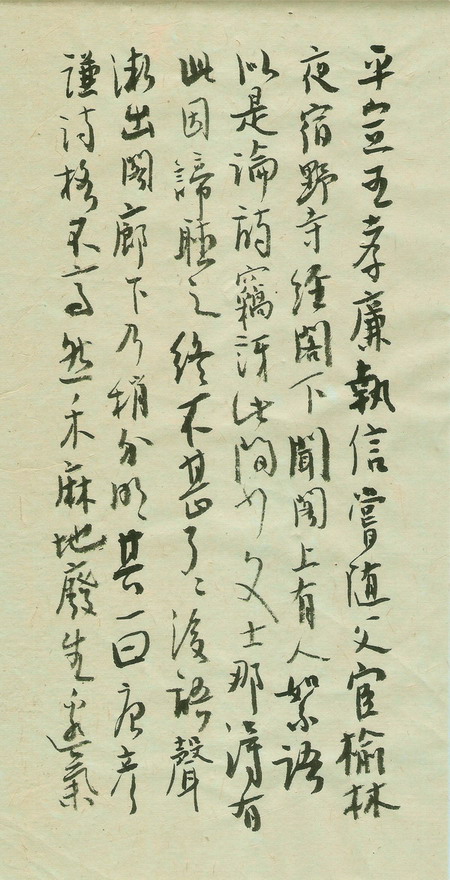 平定王孝廉執信嘗随父宦榆林
夜宿野寺經閣下聞閣上有人絮語
似是論詩竊訝此間少文士那得有
此因諦聽之終不甚了〻後語聲
漸出閣廊下乃稍分明其一曰唐彦
謙詩格不高然禾麻地廢生邊氣